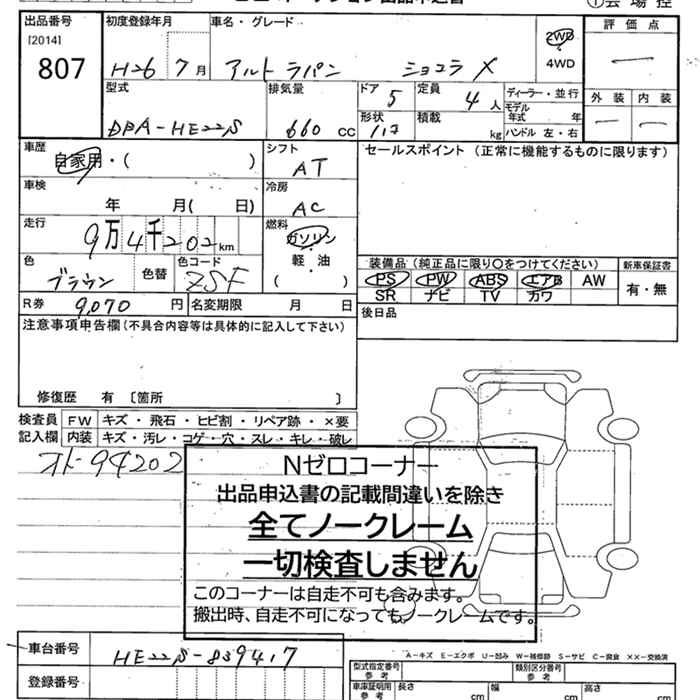 出品番号 初度登録年月 車名・グレード 2WD 評価点
[2014]
807
H26 7月 アルト ラパン ショコラ X 4WD
型式 排気量 ドア 5 定員 4人 ディーラー・並行 外装 内装
モデル年式 年
DBA-HE22S 660 CC 形状 積載 kg ハンドル 左・右
車歴 シフト セールスポイント (正常に機能するものに限ります)
自家用・( ) AT
車検 冷房
年 月( 日) AC
走行 燃料
9万4千202km ガソリン
色 色替 色コード 軽・油 装備品 (純正品に限り〇をつけてください) 新車保証書
ブラウン ZSF ( ) PS PW ABS エアB AW 有・無
R券 9,070円 名変期限 月 日 SR ナビ TV カワ
注意事項申告欄(不具合内容等は具体的に記入して下さい) 後日品
修復歴 有 〔箇所 〕
検査員 FW キズ・飛石・ヒビ割・リペア跡・×要
記入欄 内装 キズ・汚レ・コゲ・穴・スレ・キレ・破レ
オド94202
Nゼロコーナー
出品申込書の記載間違いを除き
全てノークレーム
一切検査しません
このコーナーは自走不可も含みます。
搬出時、自走不可になってもノークレームです。
車台番号 HE22S-839417
A-キズ E-エクボ U-凹み W-補修跡 S-サビ C-腐食 ××-交換済
登録番号 型式指定番号 参考 類別区分番号 参考
車庫証明用 参考 長さ cm 幅 cm 高さ cm